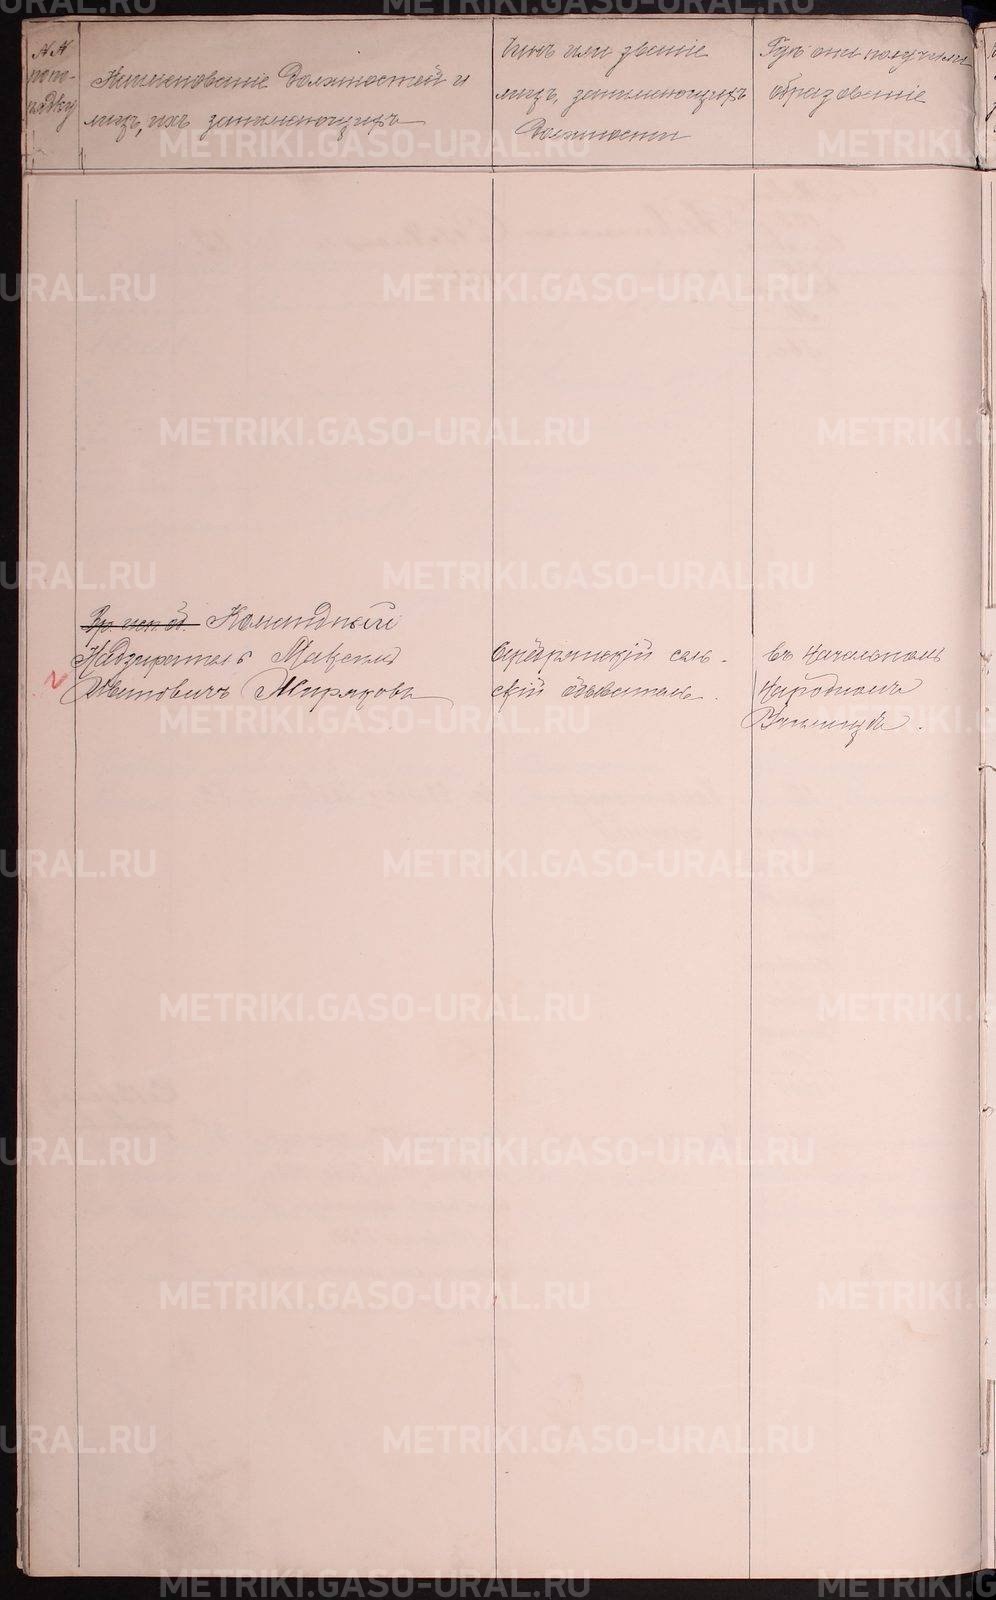 NN
по по-
рядку
Наименованіе должностей и
лицъ, ихъ занимающихъ
Чинъ или званіе
лицъ, занимающихъ
должности
Гдѣ они получили
образованіе
Вр. исп. об. Командный
Надзиратель Максимъ
Ивановичъ Ширяковъ
Серебрянскій сель-
скій обыватель.
Въ начальномъ
народномъ
Училищѣ.
METRIKI.GASO-URAL.RU